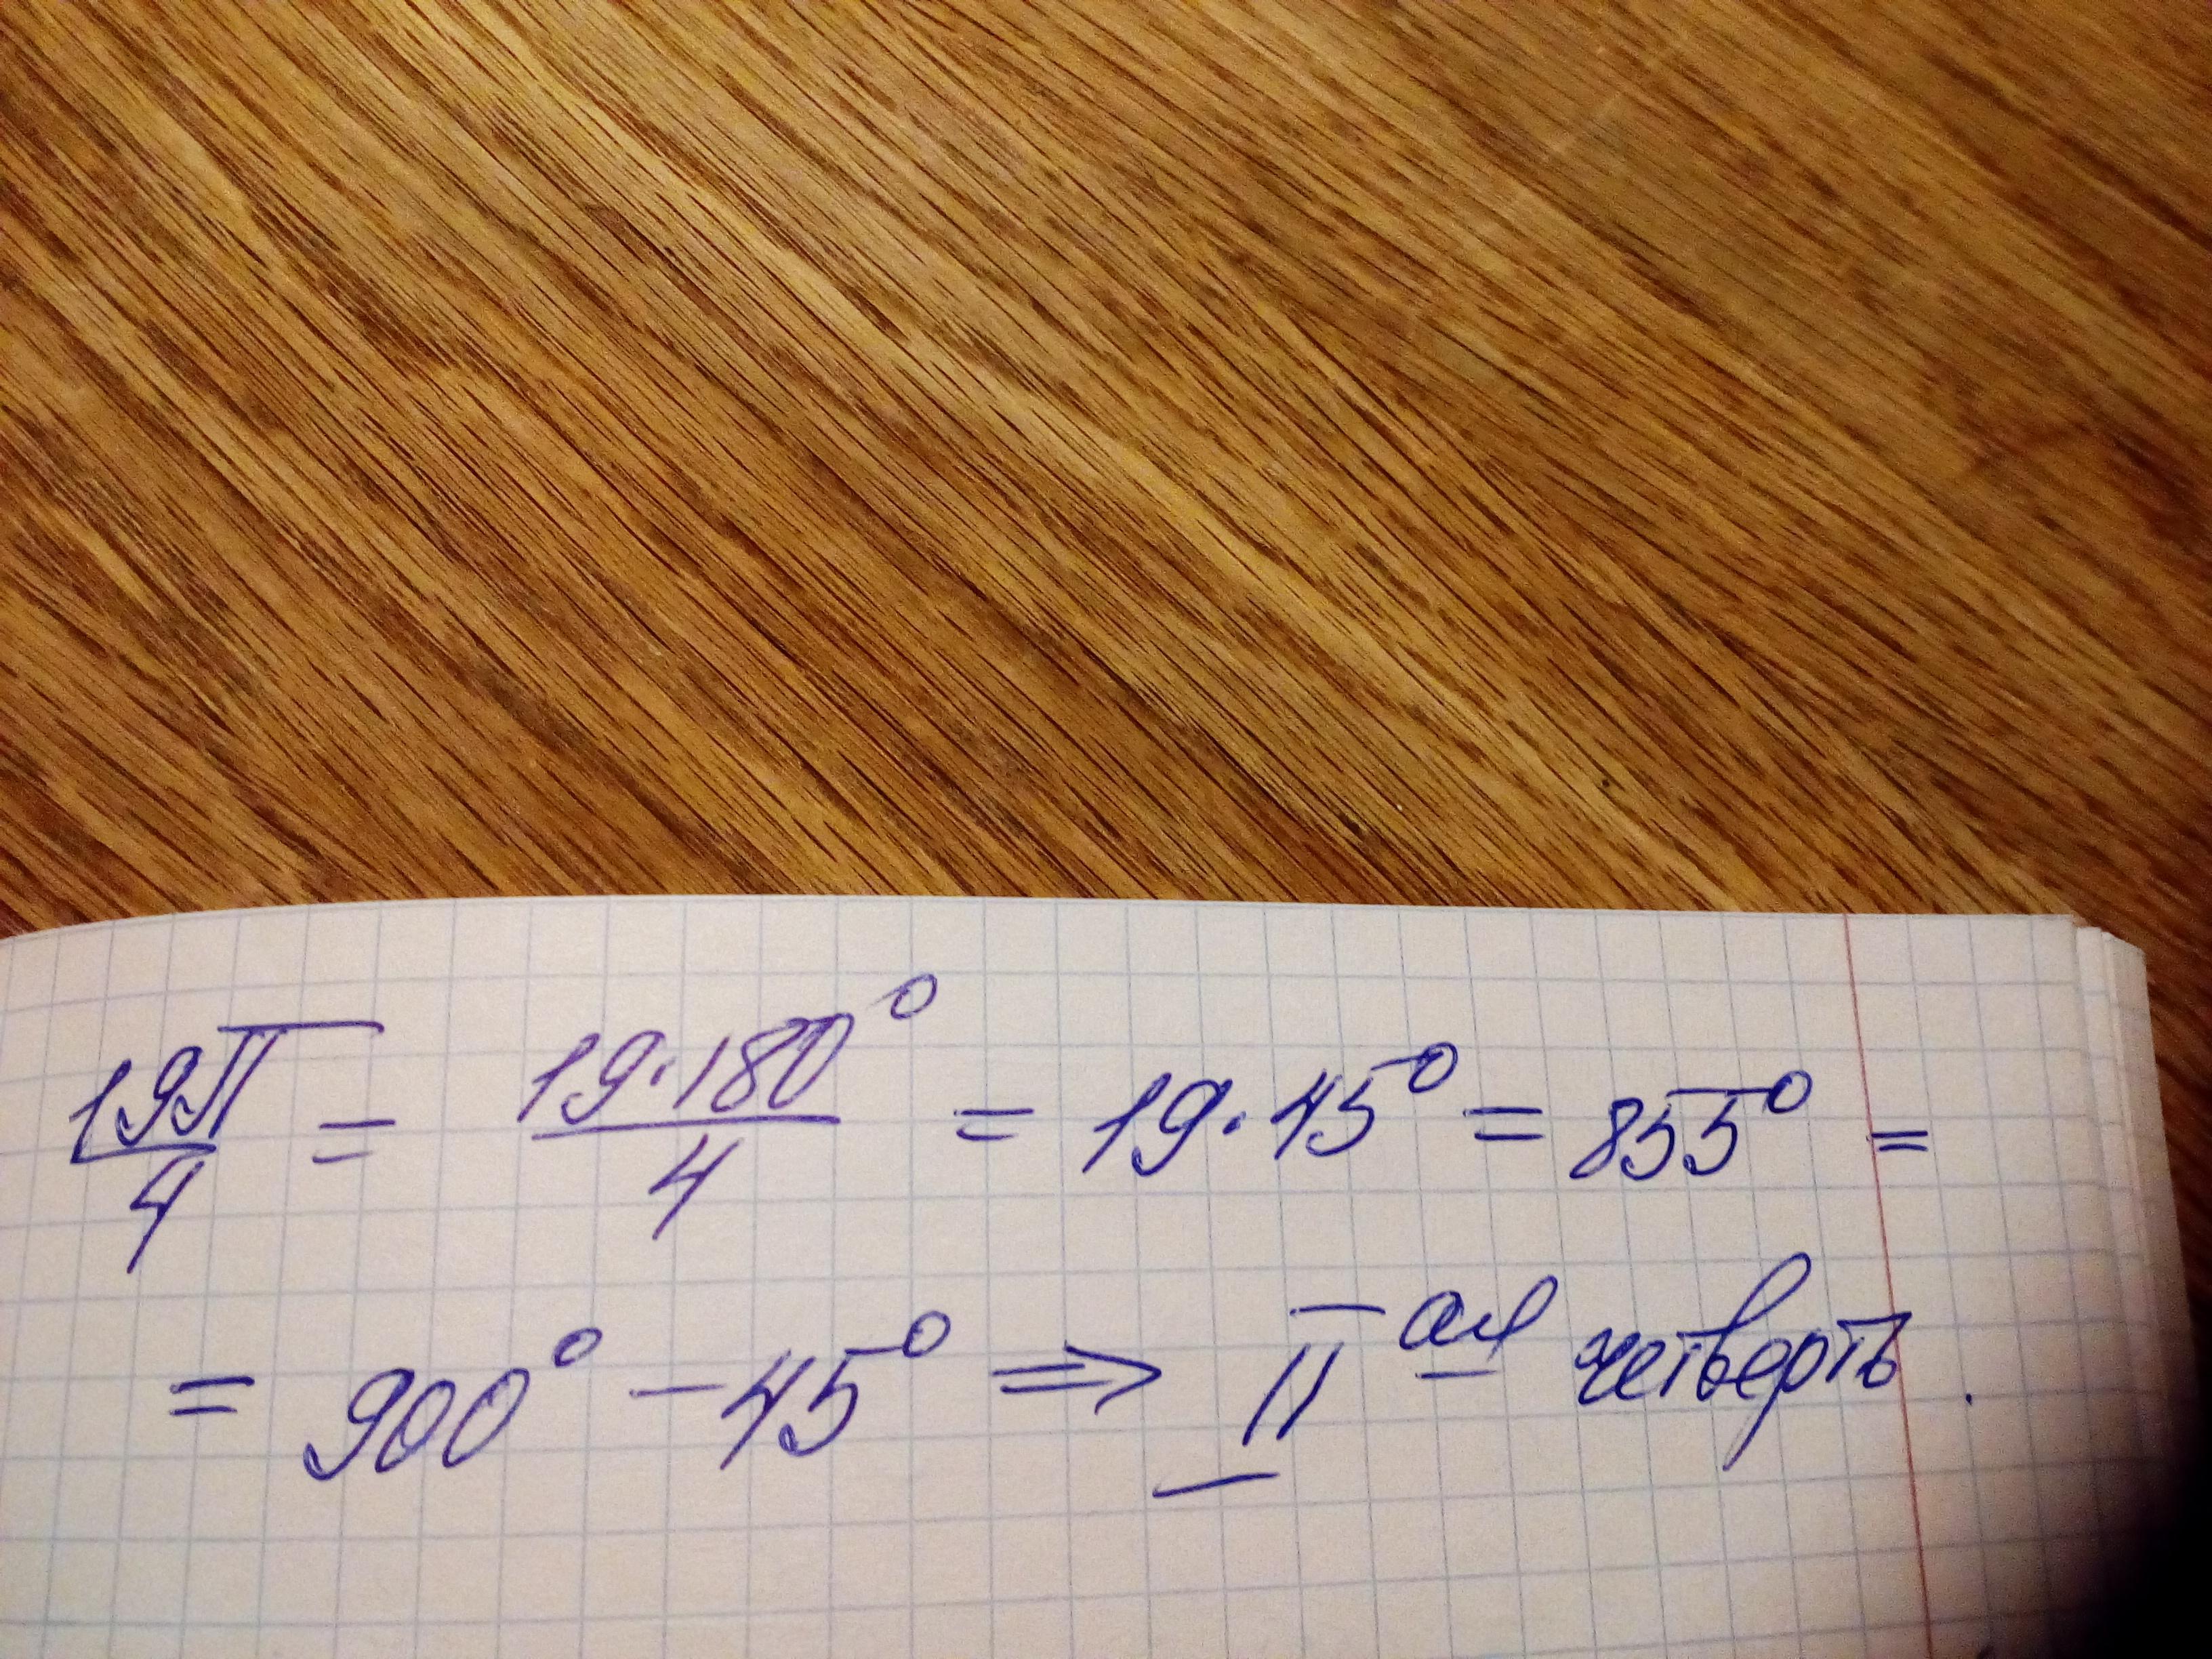 19π/4 = 19·180°/4 = 19·45° = 855° =
= 900° − 45° ⇒ II ая четверть.